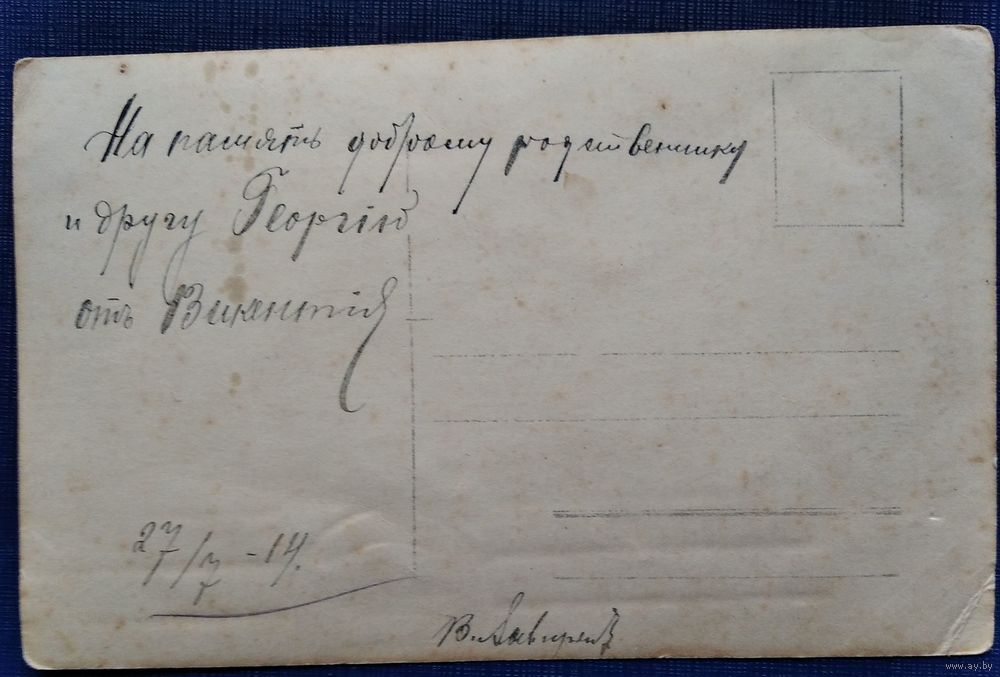 На память доброму родственнику
и другу Георгію
отъ Викентія
27/7 -14.
www.ay.by